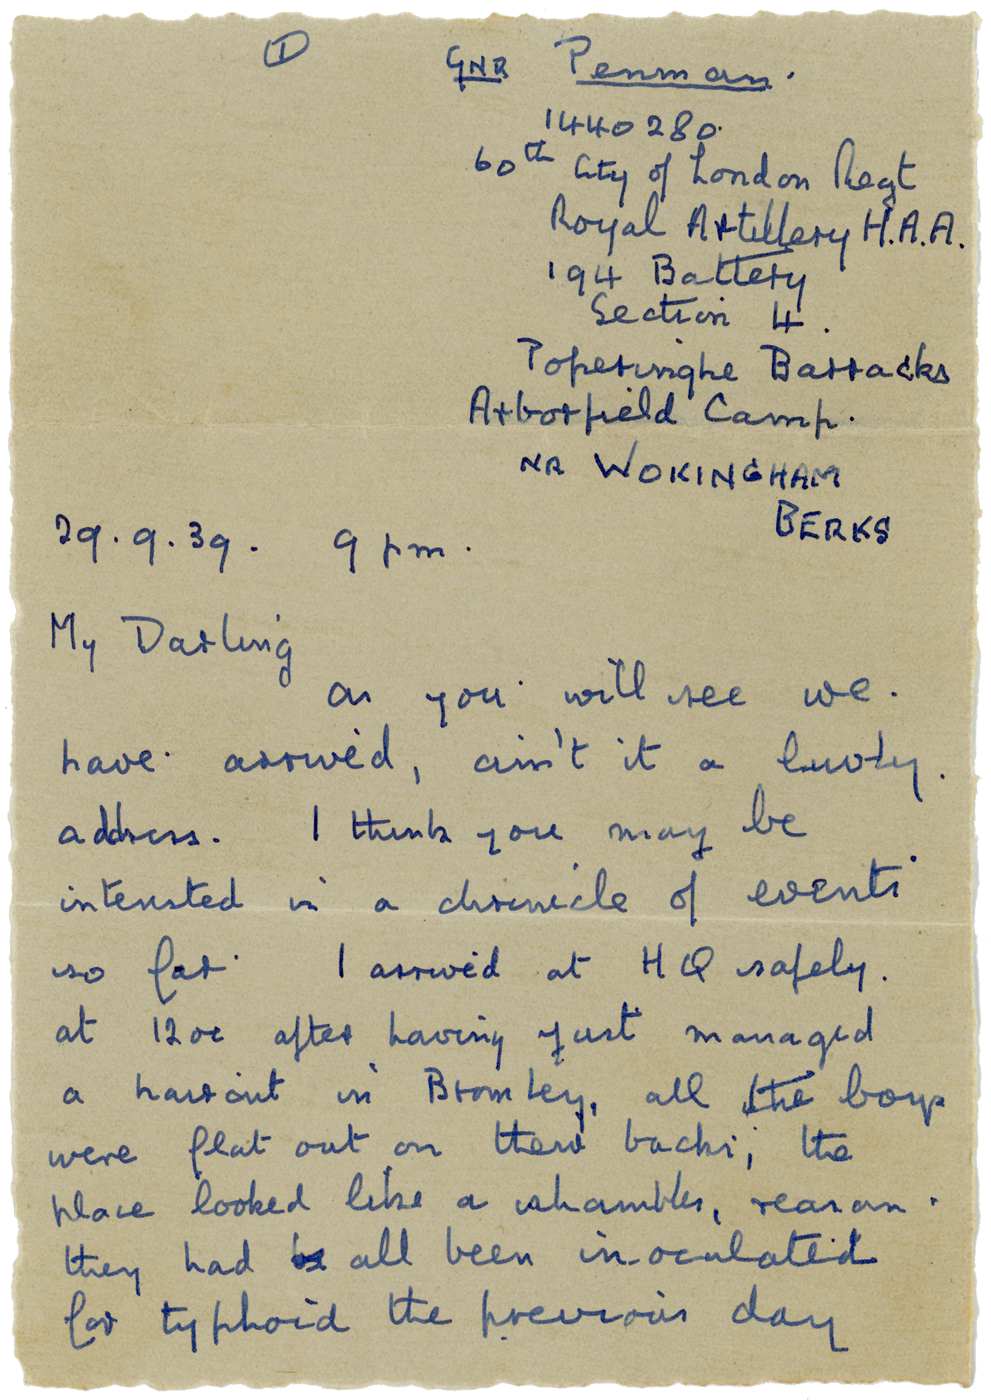 ① GNR Penman.
1440280.
60th City of London Regt
Royal Artillery H.A.A.
194 Battery
Section 4.
Poperinghe Barracks
Arborfield Camp.
NR WOKINGHAM
BERKS
29.9.39. 9 pm.
My Darling
as you will see we
have arrived, ain't it a luvly
address. I think you may be
interested in a chronicle of events
so far. I arrived at HQ safely.
at 12oc after having just managed
a haircut in Bromley, all the boys
were flat out on their backs, the
place looked like a shambles, reason
they had all been inoculated
for typhoid the previous day